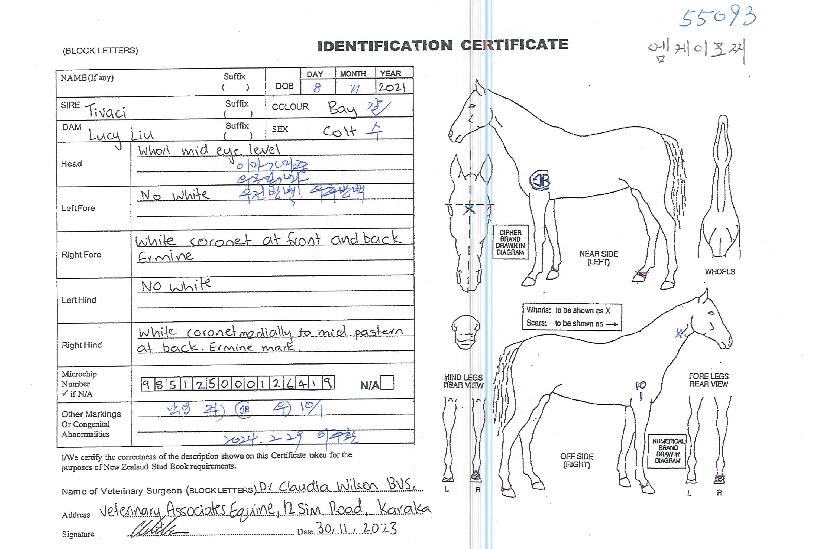 55093
(BLOCK LETTERS)
IDENTIFICATION CERTIFICATE
엠제이포커
NAME (If any)
Suffix
( )
DOB
DAY
8
MONTH
11
YEAR
2021
SIRE Tivaci
Suffix
( )
COLOUR Bay 갈
DAM Lucy Liu
Suffix
( )
SEX Colt 수
Head
Whorl mid eye level
Left Fore
No white
Right Fore
White coronet at front and back.
Ermine
Left Hind
No white
Right Hind
White coronet medially to mid pastern
at back. Ermine mark.
Microchip
Number
✓ if N/A
985125000126419
N/A
Other Markings
Or Congenital
Abnormalities
낙인 좌) JB 우) 10/1
2024. 2. 29
I/We certify the correctness of the description shown on this Certificate taken for the
purposes of New Zealand Stud Book requirements.
Name of Veterinary Surgeon (BLOCK LETTERS) Dr Claudia Wilson BVS.
Address Veterinary Associates Equine, 12 Sim Road, Karaka
Signature
Date 30.11.2023
JB
X
CIPHER
BRAND
DRAWN IN
DIAGRAM
NEAR SIDE
(LEFT)
WHORLS
Whorls: to be shown as X
Scars: to be shown as →
X
HIND LEGS
REAR VIEW
FORE LEGS
REAR VIEW
10
1
OFF SIDE
(RIGHT)
NUMERICAL
BRAND
DRAW IN
DIAGRAM
L R
L R